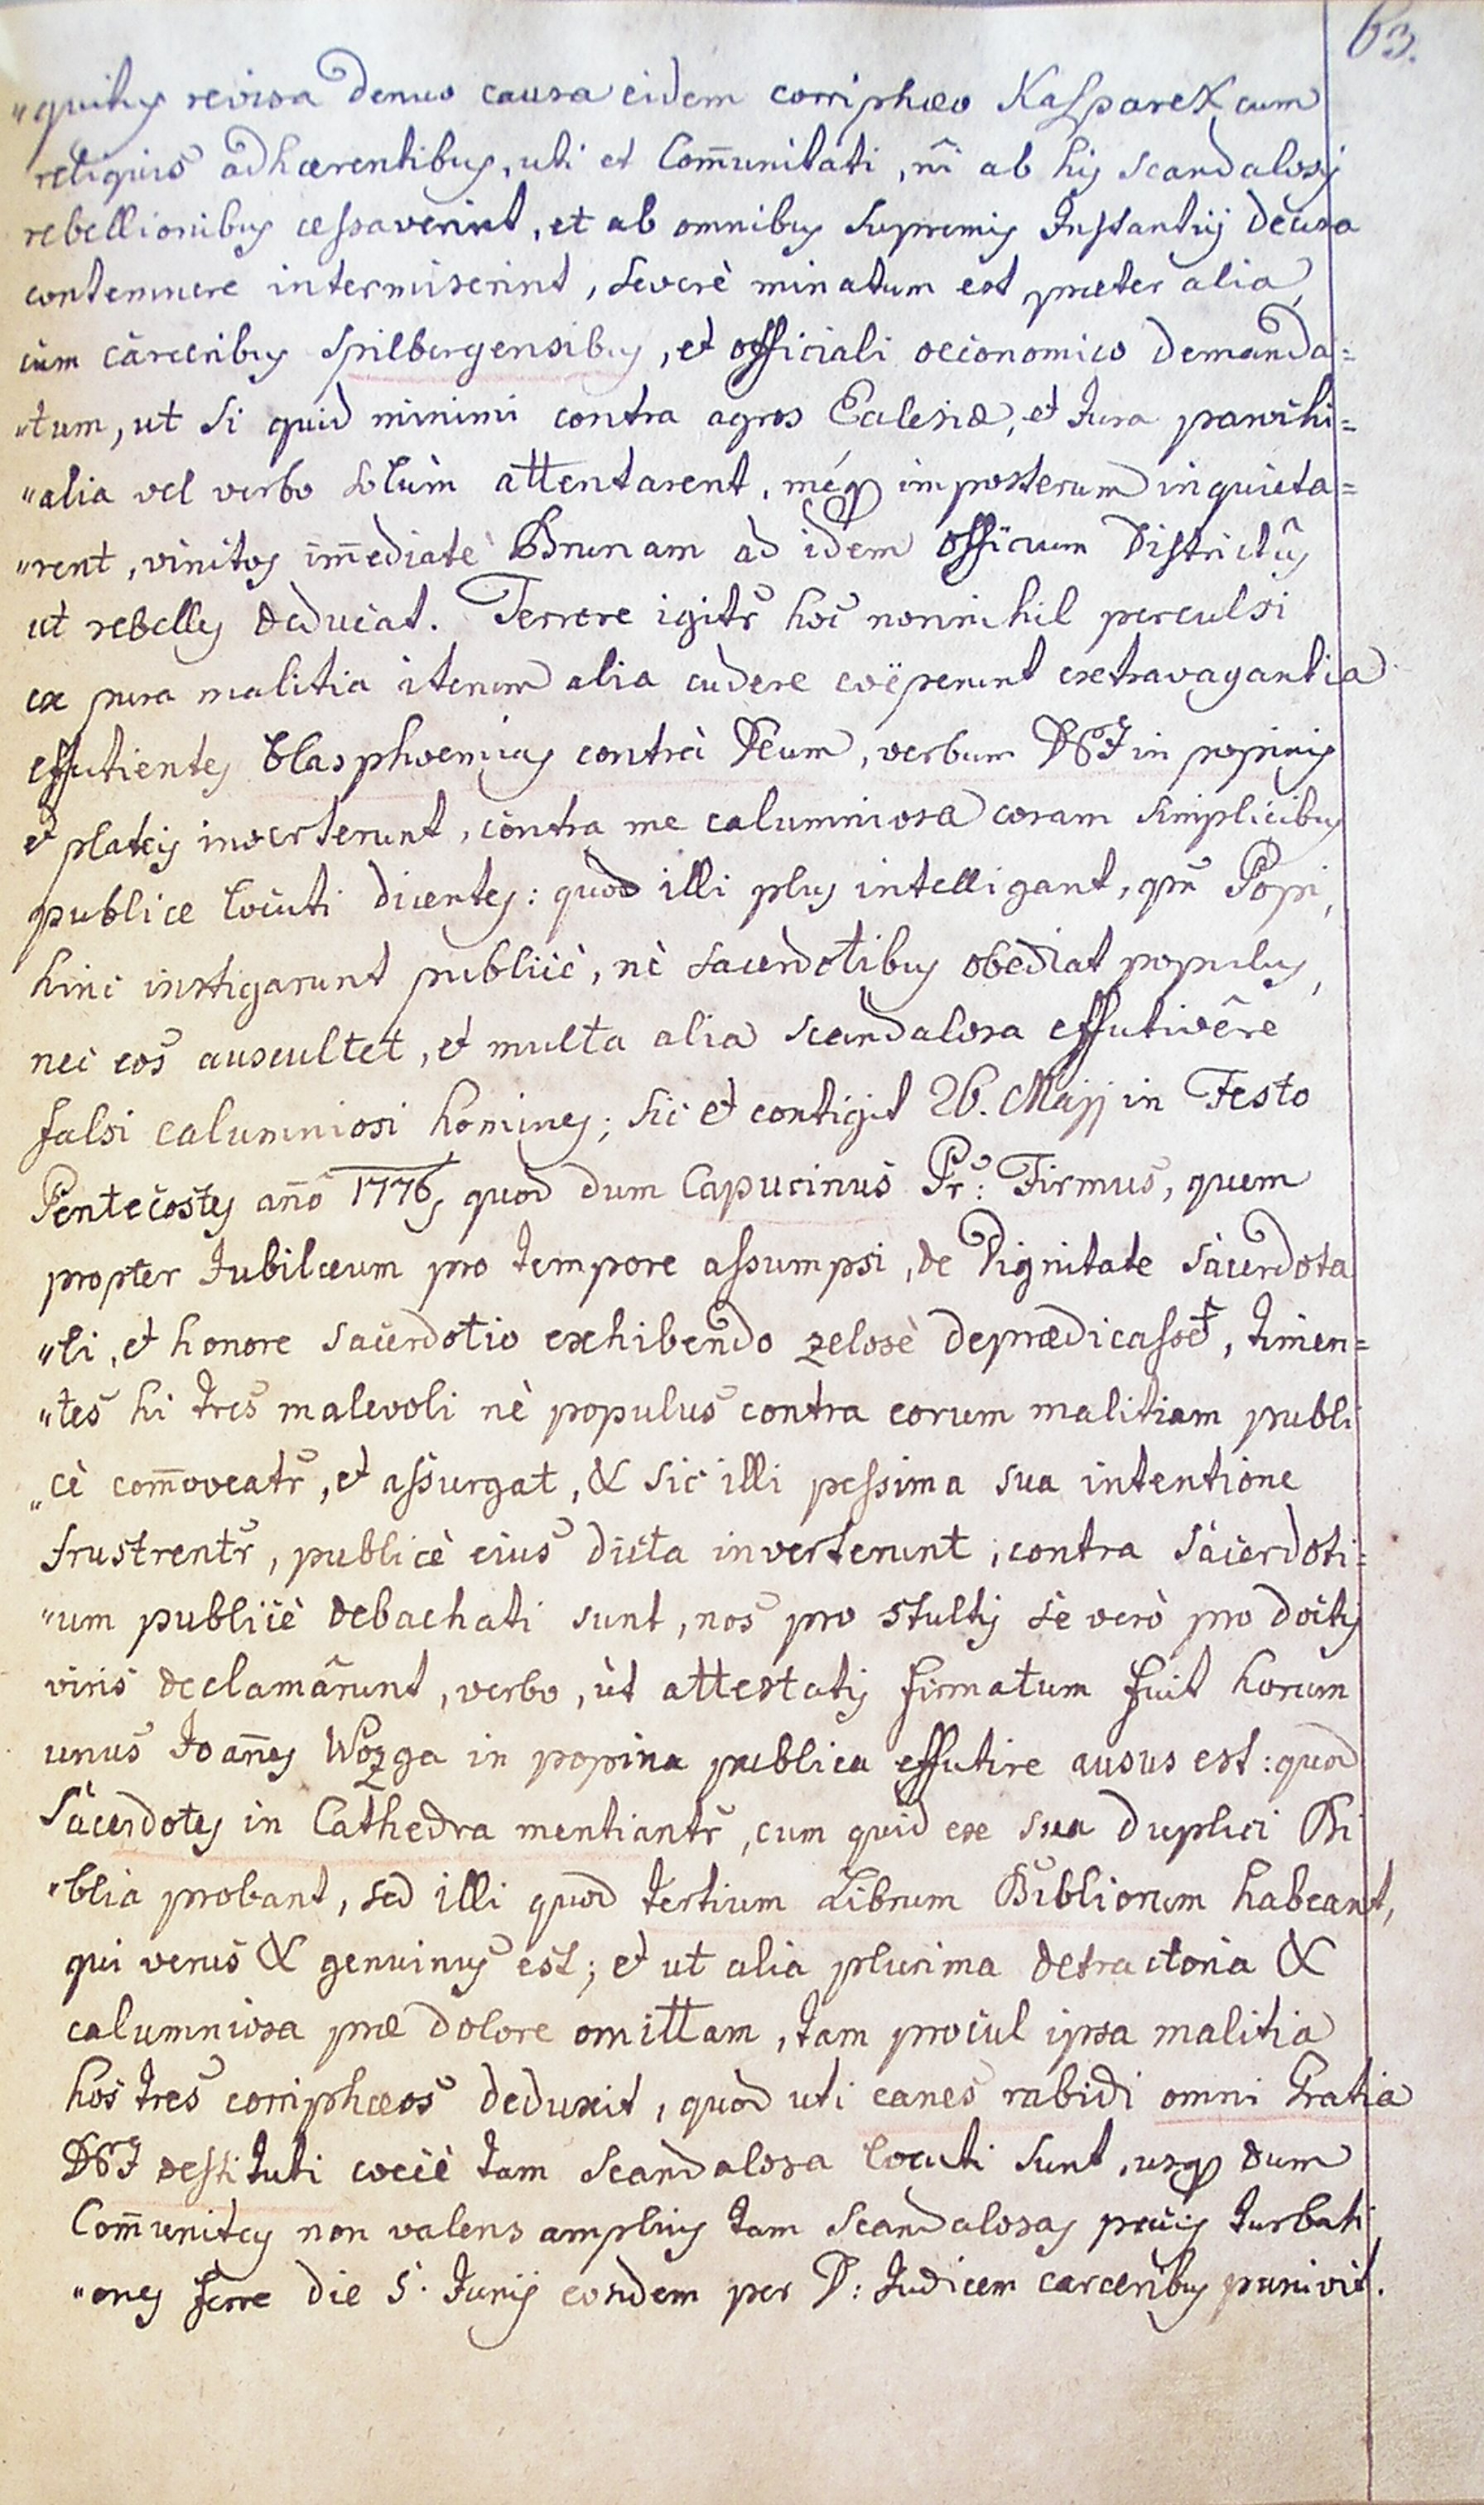 63.
"quibus revisa denuo causa eidem corriphæo Kasparek, cum
reliquis adhærentibus, uti et Com̄unitati, nî ab his scandalosis
rebellionibus cessaverint, et ab omnibus supremis Instantijs decisa
contemnere intermiserint, severè minatum est præter alia,
cum carceribus Spilbergensibus, et officiali oeconomico demanda=
"tum, ut si quid minimi contra agros Eclesiæ, et Jura parochi=
"alia vel verbo solùm attentarent, méq imposterum inquieta=
"rent, vinctos im̄ediatè Brunam ad idem officium Districtûs
ut rebelles deducat. Terrore igitr hoc nonnihil perculsi
ex pura malitia iterum alia cudere coëperunt extravagantia
effutientes blasphoemias contrà Deum, verbum DEI in popinis
et plateis inverterunt, contra me calumniosa coram simplicibus
publice locuti dicentes: quod illi plus intelligant, qm̄ Popi,
hinc instigarunt publicè, nè sacerdotibus obediat populus,
nec eos auscultet, et multa alia scandalosa effutivêre
falsi calumniosi homines; sic et contigit 26. Maij in Festo
Pentecostes an̄o 1776, quod dum Capucinus Pr: Firmus, quem
propter Jubilæum pro tempore assumpsi, de Dignitate sacerdota
"li, et honore sacerdotio exhibendo zelosè deprædicasset, timen=
"tes hi tres malevoli nè populus contra eorum malitiam publi
"cè com̄oveatr, et assurgat, & sic illi pessima sua intentione
frustrentr, publicè eius dicta inverterunt, contra sacerdoti=
"um publicè debachati sunt, nos pro stultis se verò pro doctis
viris declamârunt, verbo, ùt attestatis firmatum fuit horum
unus Joan̄es Wozga in popina publica effutire ausus est: quod
Sacerdotes in Cathedra mentiantr, cum quid ex sua duplici Bi
"blia probant, sed illi quod tertium Librum Bibliorum habeant,
qui verus & genuinus est; et ut alia plurima detractoria &
calumniosa præ dolore omittam, tam procul ipsa malitia
hos tres corriphæos deduxit, quod uti canes rabidi omni Gratia
DEI destituti coecè tam scandalosa locuti sunt, usq dum
Com̄unitas non valens amplius tam scandalosas pacis turbati
"ones ferre die 5. Junij eosdem per D: Judicem carceribus punivit.